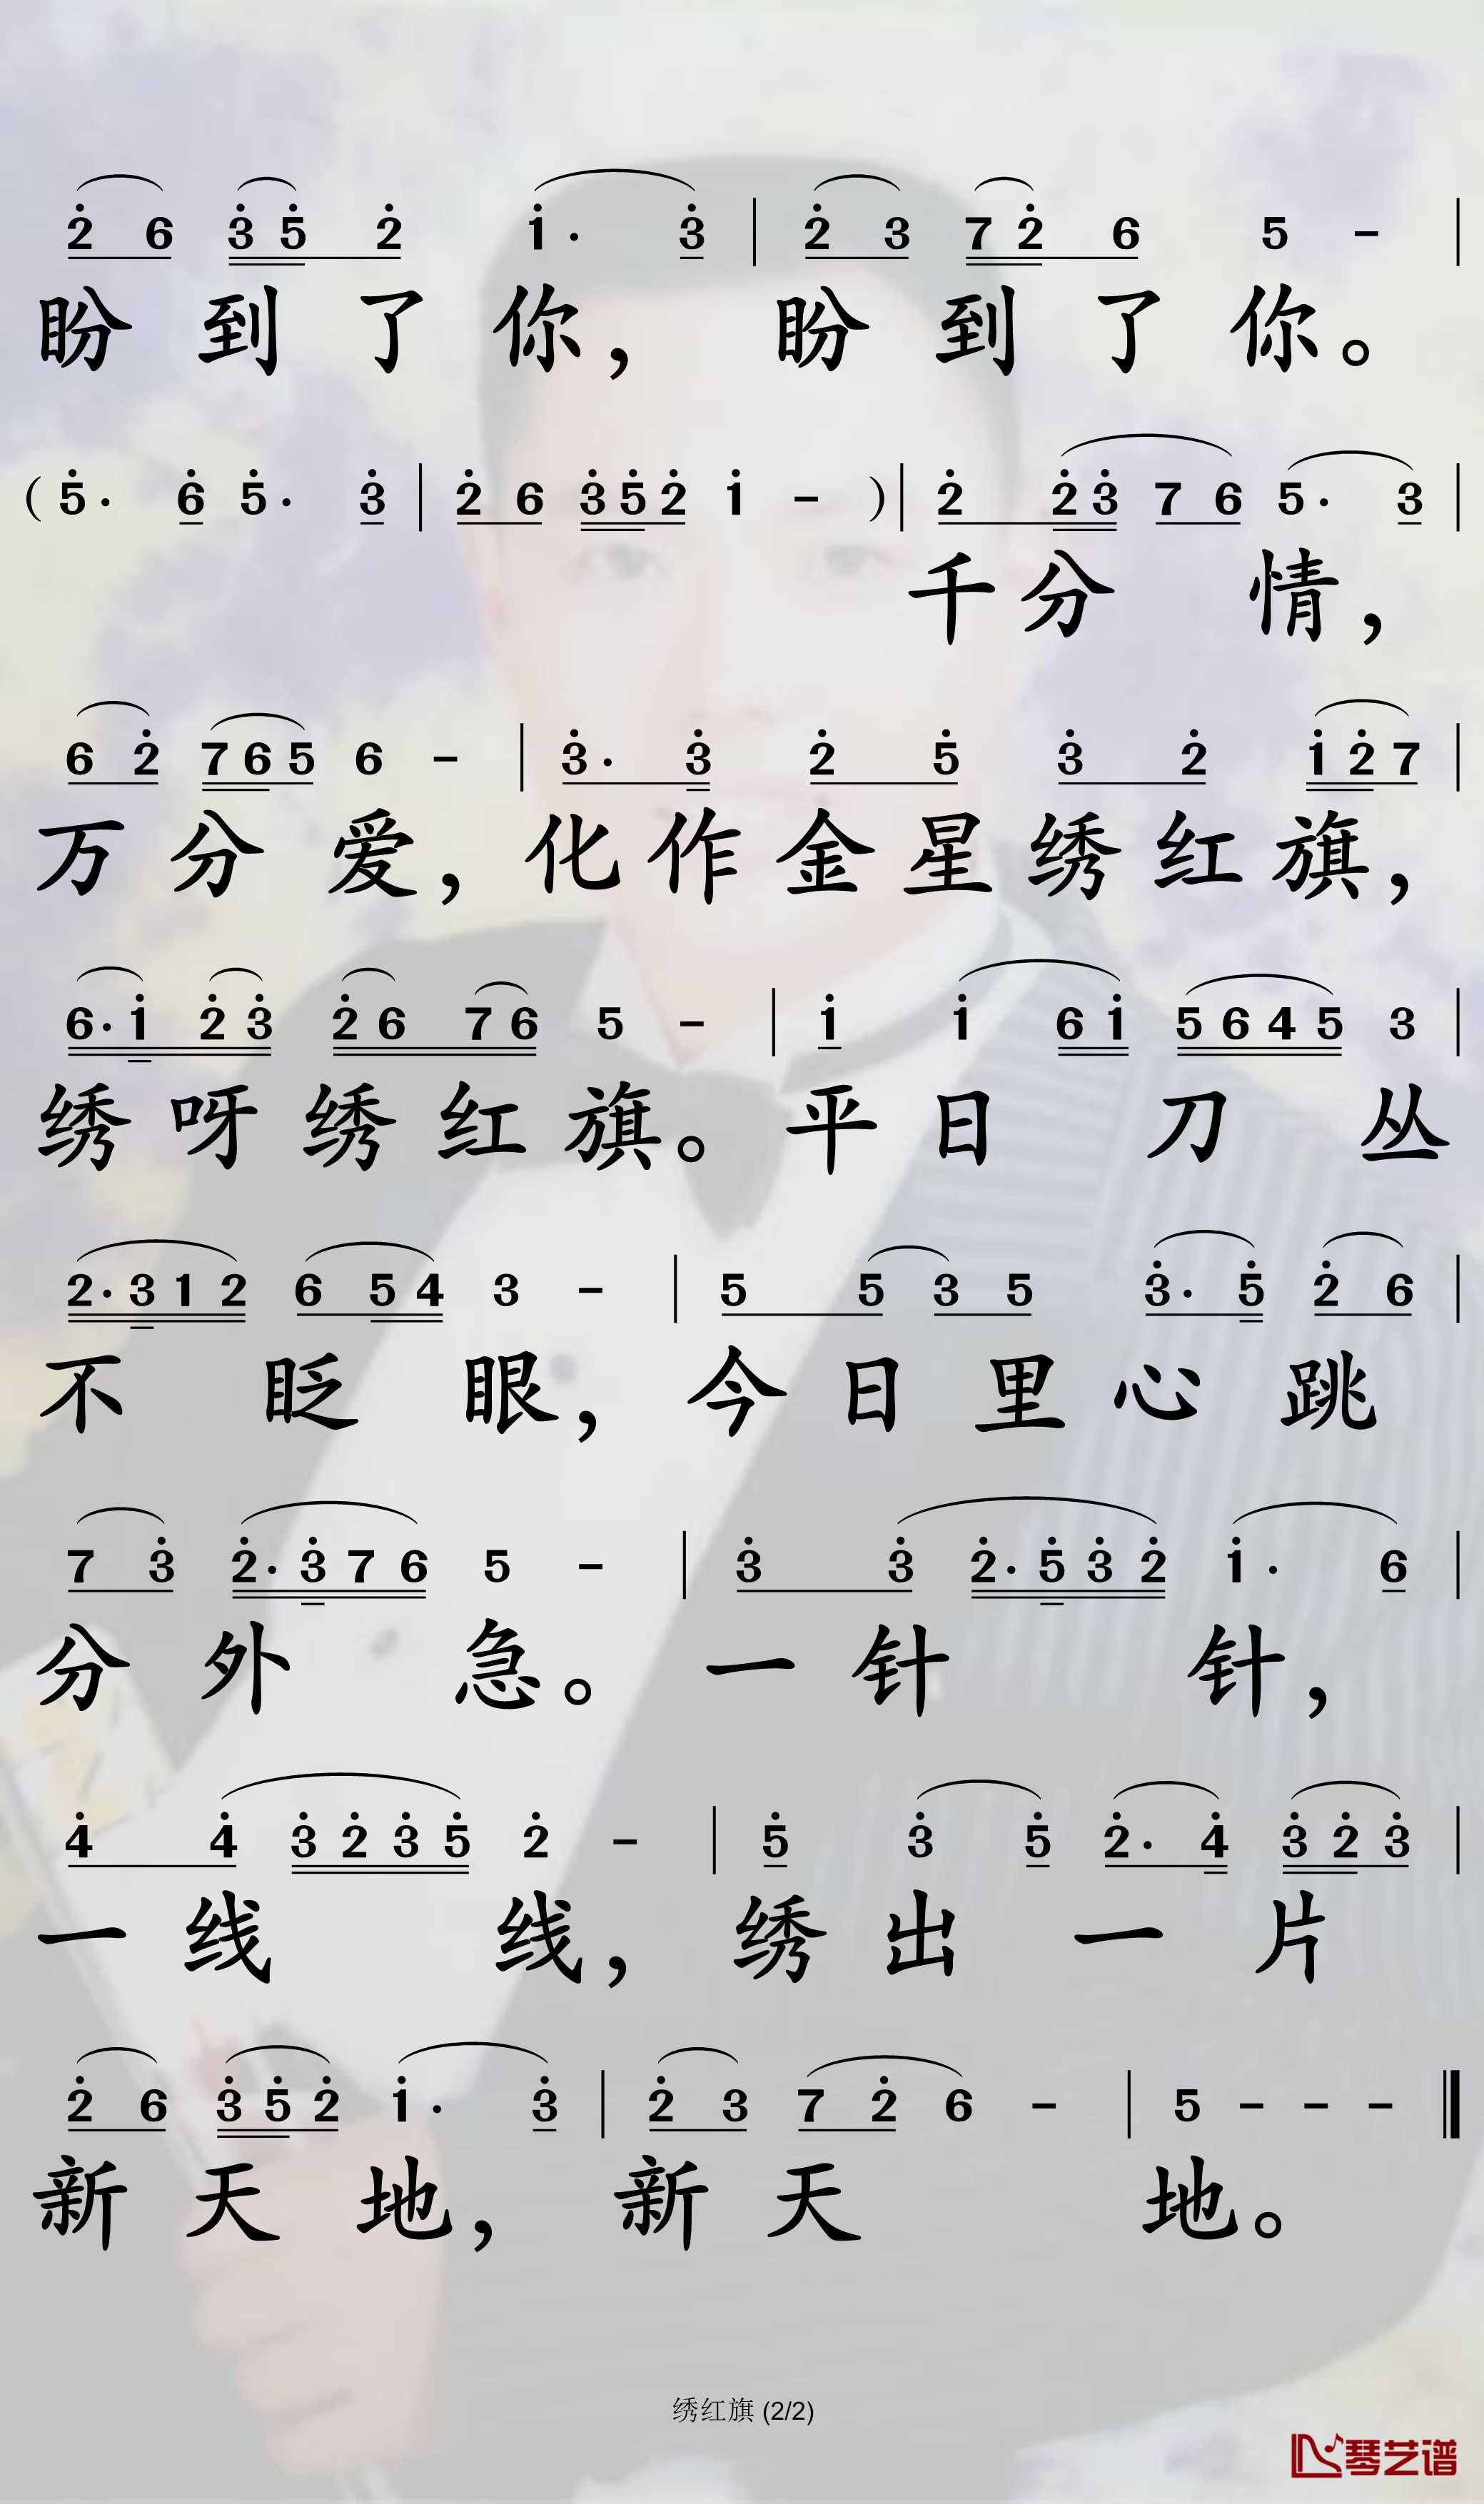 2̇ 6 3̇ 5̇ 2̇ 1̇· 3̇ | 2̇ 3 7 2̇ 6 5 － |
盼到了你，盼到了你。
( 5̇· 6̇ 5̇· 3̇ | 2̇ 6 3̇ 5̇ 2̇ 1̇ － ) | 2̇ 2̇ 3̇ 7 6 5· 3 |
千分情，
6 2̇ 7 6 5 6 － | 3̇· 3̇ 2̇ 5̇ 3̇ 2̇ 1̇ 2̇ 7 |
万分爱，化作金星绣红旗，
6· 1̇ 2̇ 3̇ 2̇ 6 7 6 5 － | 1̇ 1̇ 6 1̇ 5 6 4 5 3 |
绣呀绣红旗。平日刀丛
2· 3 1 2 6 5 4 3 － | 5 5 3 5 3̇· 5̇ 2̇ 6 |
不眨眼，今日里心跳
7 3̇ 2̇· 3̇ 7 6 5 － | 3̇ 3̇ 2̇· 5̇ 3̇ 2̇ 1̇· 6 |
分外急。一针针，
4̇ 4̇ 3̇ 2̇ 3̇ 5̇ 2̇ － | 5̇ 3̇ 5̇ 2̇· 4̇ 3̇ 2̇ 3̇ |
一线线，绣出一片
2̇ 6 3̇ 5̇ 2̇ 1̇· 3̇ | 2̇ 3 7 2̇ 6 － | 5 － － － ‖
新天地，新天地。
绣红旗 (2/2)
琴艺谱